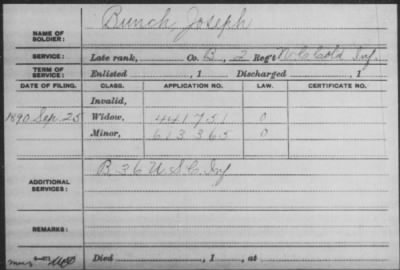 NAME OF SOLDIER: Bunch, Joseph
SERVICE: Late rank, Co. B, 2 Reg't N.C. Cold Inf.
TERM OF SERVICE: Enlisted , 1 Discharged , 1
DATE OF FILING. CLASS. APPLICATION NO. LAW. CERTIFICATE NO.
Invalid,
1890 Sep. 25 Widow, 441751 0
Minor, 613365 0
ADDITIONAL SERVICES: B 36 U.S.C. Inf
REMARKS:
Died , 1 , at